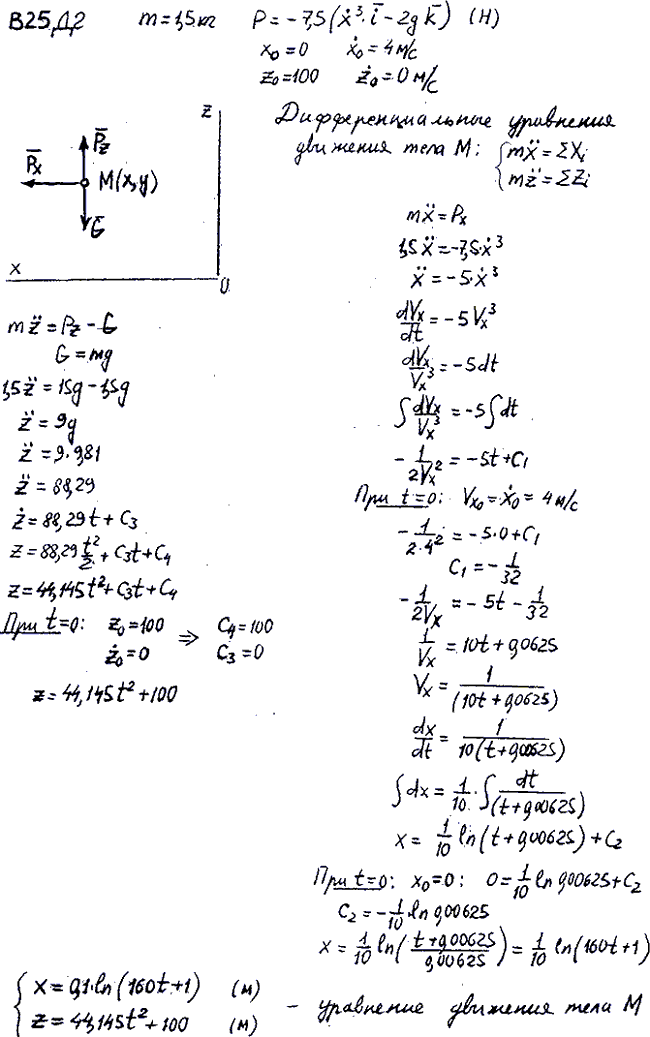 В25Д2 m = 1,5 кг P̄ = -7,5(ẋ³·ī - 2g k̄) (Н)
x₀ = 0 ẋ₀ = 4 м/с
z₀ = 100 ż₀ = 0 м/с
z
P̄z
P̄x
M(x,y)
Ḡ
x
0
Дифференциальные уравнения
движения тела М: { mẍ = ΣXᵢ
mz̈ = ΣZᵢ
mẍ = Pₓ
1,5ẍ = -7,5·ẋ³
ẍ = -5·ẋ³
dVₓ/dt = -5Vₓ³
dVₓ/Vₓ³ = -5dt
∫dVₓ/Vₓ³ = -5∫dt
-1/2Vₓ² = -5t + C₁
При t=0: Vₓ₀ = ẋ₀ = 4 м/с
-1/2·4² = -5·0 + C₁
C₁ = -1/32
-1/2Vₓ = -5t - 1/32
1/Vₓ = 10t + 0,0625
Vₓ = 1/(10t + 0,0625)
dx/dt = 1/10(t + 0,00625)
∫dx = 1/10·∫dt/(t + 0,00625)
x = 1/10 ln(t + 0,00625) + C₂
При t=0: x₀ = 0: 0 = 1/10 ln 0,00625 + C₂
C₂ = -1/10·ln 0,00625
x = 1/10 ln((t + 0,00625)/0,00625) = 1/10 ln(160t + 1)
mz̈ = Pz - G
G = mg
1,5z̈ = 15g - 1,5g
z̈ = 9g
z̈ = 9·9,81
z̈ = 88,29
ż = 88,29t + C₃
z = 88,29 t²/2 + C₃t + C₄
z = 44,145t² + C₃t + C₄
При t=0: z₀ = 100 ⇒ C₄ = 100
ż₀ = 0 C₃ = 0
z = 44,145t² + 100
{ x = 0,1·ln(160t + 1) (м)
z = 44,145t² + 100 (м)
- уравнение движения тела М